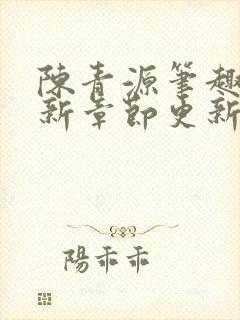 陳青源筆趣
新章節更新
陽乖乖